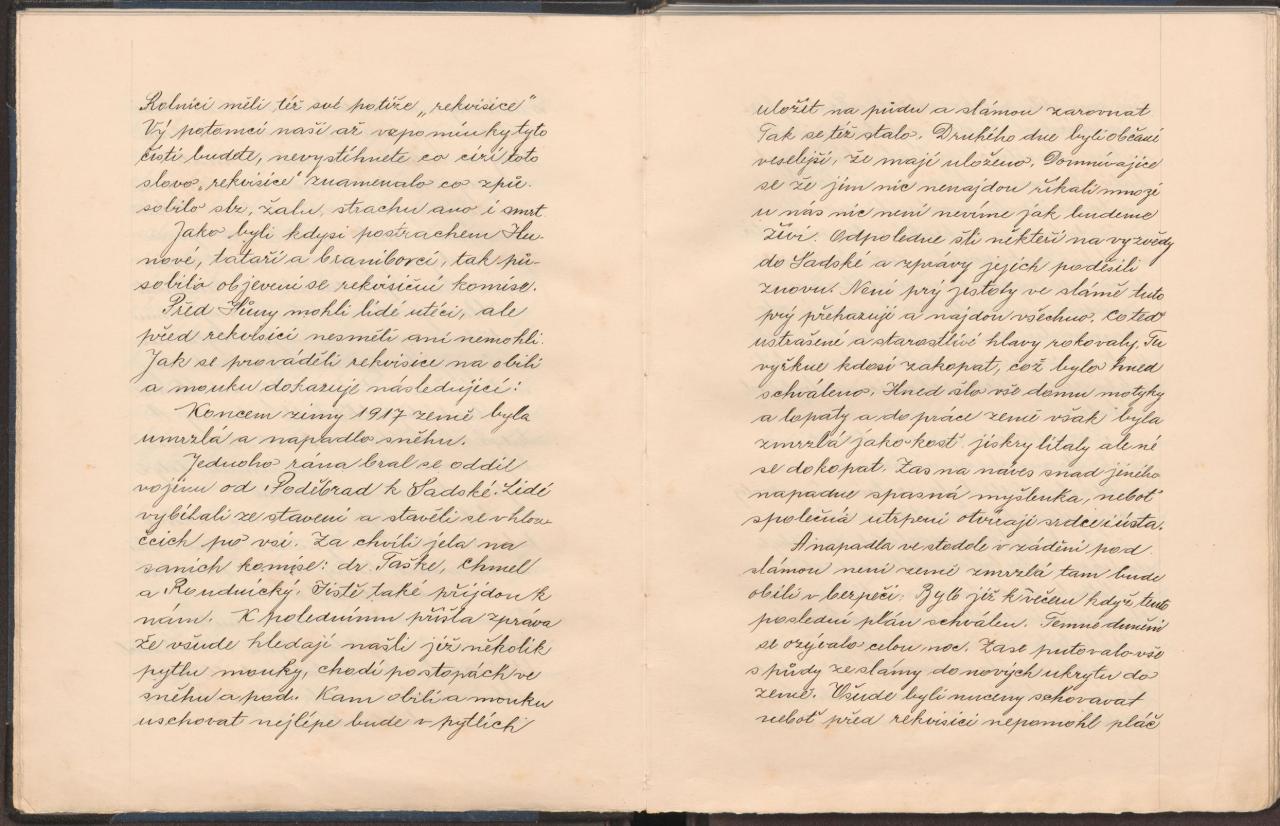 Rolníci měli též své potíže „rekvisice"
Vý potomci naši až vzpomínky tyto
čísti budete, nevystihnete co cizí toto
slovo „rekvisice" znamenalo co způ-
sobilo slz, žalu, strachu ano i smrt.
Jako byli kdysi postrachem Hu-
nové, tataři a braniboři, tak pů-
sobilo objevení se rekvisiční komise.
Před Huny mohli lidé utéci, ale
před rekvisicí nesměli ani nemohli.
Jak se prováděli rekvisice na obilí
a mouku dokazuje následující:
Koncem zimy 1917 země byla
umrzlá a napadlo sněhu.
Jednoho rána bral se oddíl
vojínu od Poděbrad k Sadské. Lidé
vybíhali ze stavení a stavěli se v hlou-
čcích po vsi. Za chvíli jela na
saních komise: dr Taške, Chmel
a Roudnický. Jistě také přijdou k
nám. K polednímu přišla zpráva
že všude hledají našli již několik
pytlu mouky, chodí po stopách ve
sněhu a pod. Kam obilí a mouku
uschovat nejlépe bude v pytlích
uložit na půdu a slámou zarovnat
Tak se též stalo. Druhého dne byli občané
veselejší, že mají uloženo. Domnívajíce
se že jim nic nenajdou říkali mnozí
u nás nic není nevíme jak budeme
živi. Odpoledne šli někteří na vyzvědy
do Sadské a zprávy jejich poděsili
znovu. Není prý jistoty ve slámě tuto
prý přehazují a najdou všechno. Co teď
ustrašené a starostlivé hlavy rokovaly. Tu
vyřkne kdosi zakopat, což bylo hned
schváleno. Hned šlo vše domu motyky
a lopaty a do práce země však byla
zmrzlá jako kost jiskry lítaly ale né
se dokopat. Zas na náves snad jiného
napadne spasná myšlenka, neboť
společná utrpení otvírají srdce i ústa.
A napadla ve stodole v zádění pod
slámou není země zmrzlá tam bude
obilí v bezpečí. Bylo již k večeru když tento
poslední plán schválen. Temné dunění
se ozývalo celou noc. Zase putovalo vše
s půdy ze slámy do nových ukrytu do
země. Všude byli nuceny schovavat
neboť před rekvisicí nepomohl pláč